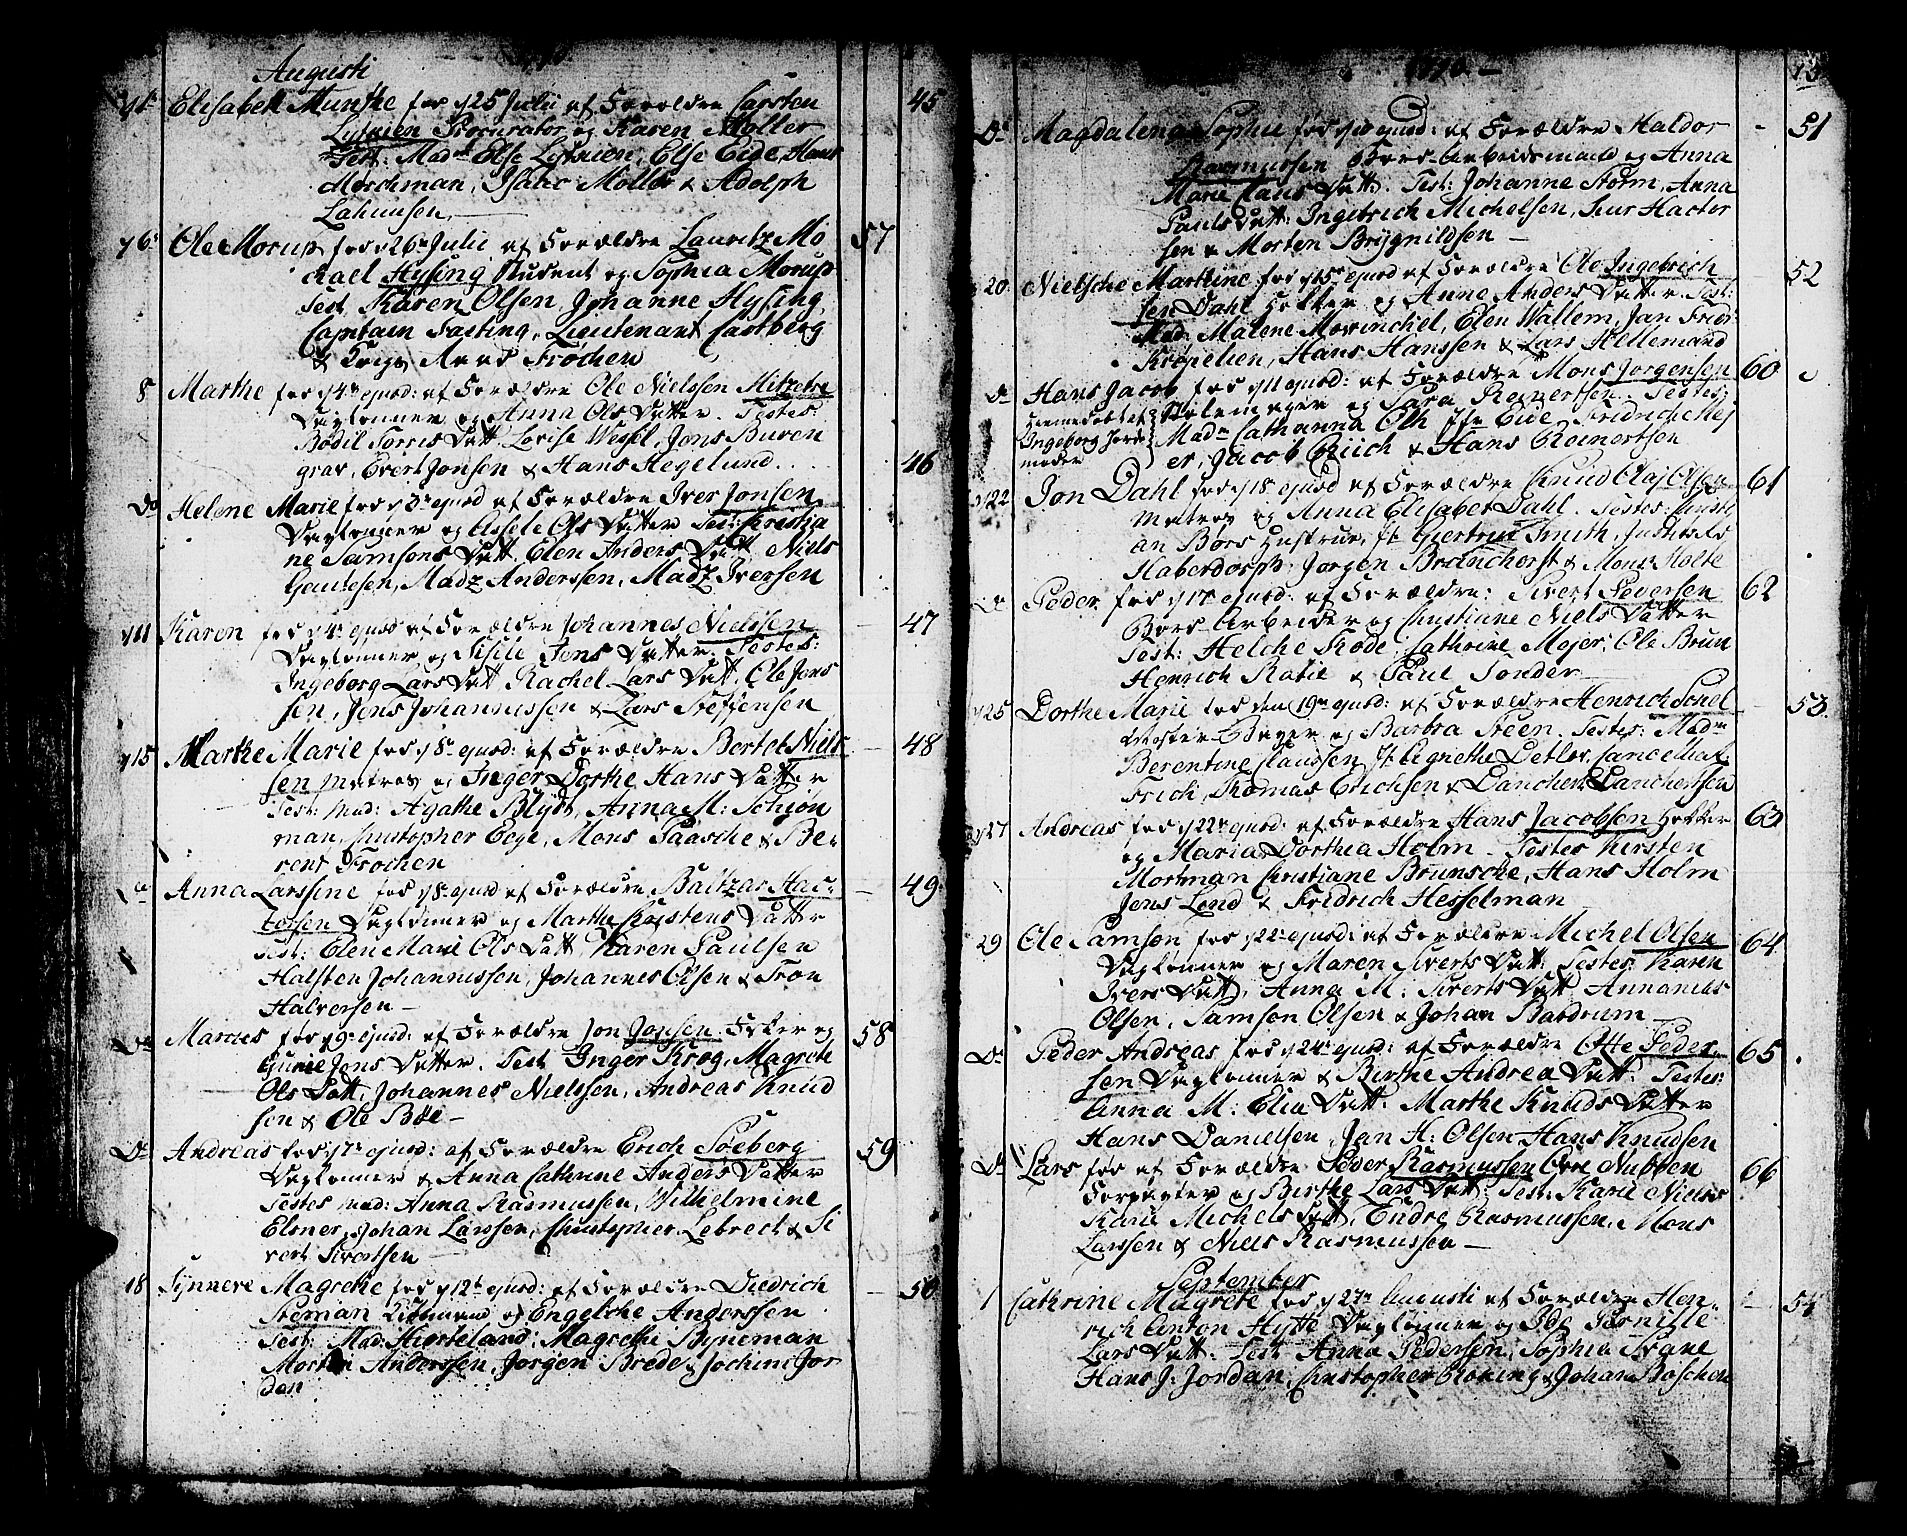 Augusti
Elisabeth Munthe fød d 25 Julii af Forældre Carsten 45
Procurator og Karen Møller
Test: Mad Else Else Eide, Hans
Isaac Møller & Adolph
Ole Morup fød d 26 Julii af Forældre Lauritz Mi 57
kael Hysing Student og Sophia Morup
Test Karen Olsen, Johanne Hysing,
Captain Fasting, Lieutenant Castberg
Frochen
8 Marthe fød d 4 ejusd: af Forældre Ole Nielssen Mitzebue
Dagløнner og Anna Ols Datter. Testes:
Bodil Torris Datt Lovise Wessel, Jens Buven
grav, Evert Jonsen & Hans Hegelund 46
Do Helene Marie fød d 3 ejusd af Forældre Iver Jonsen
Dagløner og Ols Datter Test: Christja
ne Samsons Datt, Elen Anders Datt, Niels
Madz Anderssen, Madz Iversen
d 11 Karen fød d 4 ejusd af Forældre Johannes Nielssen 47
Dagløner og Sisile Jens Datter. Testes:
Ingeborg Lars Datt, Rachel Lars Datt, Ole Jons
sen, Jens Johannessen & Lars Steffensen
d 15 Marthe Marie fød d 8 ejusd: af Forældre Bertel Niels 48
sen Matros og Inger Dorthe Hans Datter
Test: Mad: Agathe Blydt, Anna M: Schiøn
man, Christopher Ege, Mons Paasche & Be-
rent Frochen
Do Anna Larssine fød d 8 ejusd af Forældre Baltzar Hac- 49
torsen Dagløner og Marthe Christens Datter
Test: Elen Marie Ols Datt, Karen Paulsen
Halsten Johannessen, Johannes Olsen & Tron
Halversen
Do Marcus fød d 9 ejusd: af Forældre Jon Jonsen Fisker og 58
Jens Datter. Test Inger Krog, Magrete
Ols Datt, Johannes Nielssen, Andreas Knud
sen & Ole Bøe
Do Andreas fød d 7 ejusd: af Forældre Erich Søeberg 59
Dagløner & Anna Cathrine Anders Datter
Testes Mad: Anna Rasmussen, Wilhelmine
Elsner, Johan Larssen, Christopher Lebrect & Si
vert Sivertsen
18 Synnere Magrethe fød d 12 ejusd: af Forældre Diedrich 50
Steman og Engelche Anderssen
Test: Mad: Hiorteland, Magrethe Byneman
Morten Anderssen, Jørgen Brede, Jochim Jor
dan
1770
Do Magdalena Sophie fød d 10 ejusd: af Forældre Haldor 51
Rasmussen Bors-Arbeidsmand og Anna
Marie Claus Datt. Test: Johanne Storm, Anna
Pauls Datt: Ingebrich Michelsen, Hactor
sen & Morten Brygnildsen
20 Nielsche Martine fød d 15 ejusd af Forældre Ole Ingebrich 52
sen Dahl Høker og Anne Anders Datter Test:
Mad: Malene Mowinchel, Elen Wallem, Jan Frid:
Krøpelien, Hans Hanssen & Lars Hellemand
Do Hans Jacob fød d 11 ejusd: af Forældre Mons Jorgensen 60
Hiemedøbt af Stolemager og Sara Reinertsen. Testes:
Ingeborg Jorde Madm Cathanna Olh Jfr Eide, Fridrich Mej
moder er, Jacob Riich & Hans Reinertsen
d 22 Jon Dahl fød d 18 ejusd af Forældre Knud Olaj Olsen 61
Matros og Anna Elisabet Dahl. Testes: Christi
an Bors Hustrue, Jf. Giertrud Smith,
Haberdorph, Jørgen Brønchorst & Mons Holte
Do Peder fød d 17 ejusd: af Forældre: Sivert Seversen 62
Bors Arbeider og Christiane Niels Datter
Test: Helche Rode, Cathrine Mojer, Ole Brun
Henrich Ratie & Paul Sonder
d 25 Dorthe Marie fød den 19 ejusd: af Forældre Henrich Schel 53
Mester Bager og Barbra Steen. Testes: Madm
Berentine Claussen, Jf. Agnethe Detlev, Cancelliat.
Frich, Thomas Erichsen & Danchert Danchertsen
d 27 Andreas fød d 22 ejusd: af Forældre Hans Jacobsen Høker 63
og Maria Dorthea Holm. Testes Kirsten
Mortman Christiane Brunsche, Hans Holm
Jens Lend & Fridrich Hesselman
29 Ole Samson fød d 22 ejusd: af Forældre Michel Olsen 64
Dagløner og Maren Siverts Datt: Testes: Karen
Ivers Datt, Anna M: Siverts Datt Annanias
Olsen, Samson Olsen & Johan Bardrum
Do Peder Andreas fød d 24 ejusd: af Forældre Otte Peder- 65
sen Dagløner & Birthe Andrea Datt: Testes:
Anna M: Elia Datt: Marthe Knuds Datter
Hans Danielsen, Jan H: Olsen Hans Knudsen
Do Lars fød af Forældre Peder Rasmussen Øvre Nubben 66
Forpagter og Birthe Lars Datt: Test: Karie Niels
Karie Michels Datt, Endre Rasmussen, Mons
Larssen & Niels Rasmussen
September
1 Cathrine Magrete fød d 27 Augusti af Forældre Hen- 54
rich Anton Hytte Dagløner og Ide Pernille
Lars Datt: Test Anna Pedersen, Sophia Trane
Hans J: Jordan, Christopher Roning & Johan Boschen